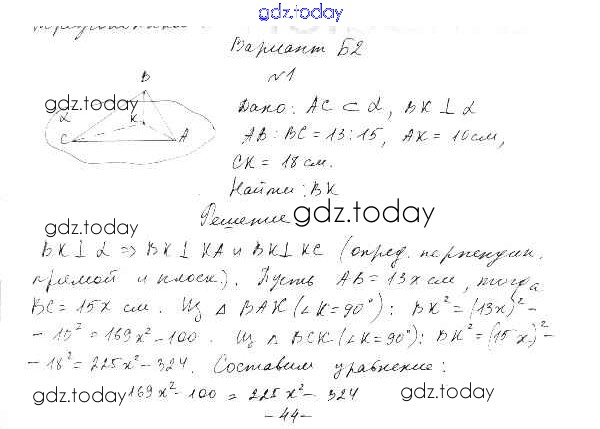 gdz.today
Вариант Б2
№1
gdz.today
В
α
К
С
А
Дано: АС ⊂ α, ВК ⊥ α
АВ : ВС = 13 : 15, АК = 10 см,
СК = 18 см.
Найти: ВК
gdz.today
Решение gdz.today
ВК ⊥ α ⇒ ВК ⊥ КА и ВК ⊥ КС (опред. перпендик.
прямой и плоск.). Пусть АВ = 13x см, тогда
ВС = 15x см. Из △ ВАК (∠К = 90°): ВК² = (13x)² -
- 10² = 169x² - 100. Из △ ВСК (∠К = 90°): ВК² = (15x)² -
- 18² = 225x² - 324. Составим уравнение:
gdz.today 169x² - 100 = 225x² - 324 gdz.today
- 44 -